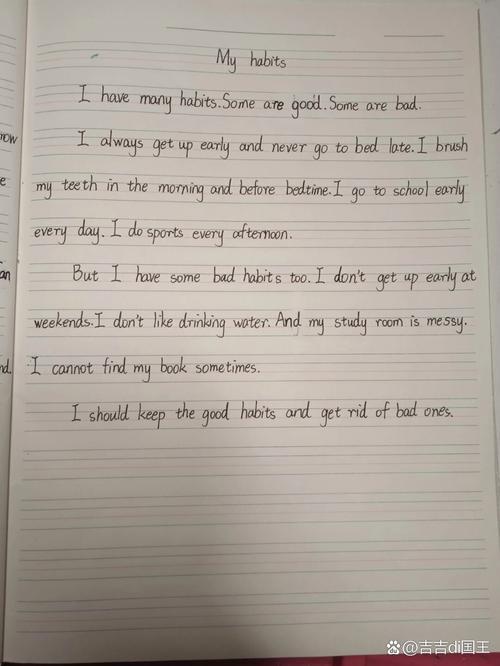 My habits
I have many habits. Some are good. Some are bad.
I always get up early and never go to bed late. I brush
my teeth in the morning and before bedtime. I go to school early
every day. I do sports every afternoon.
But I have some bad habits too. I don't get up early at
weekends. I don't like drinking water. And my study room is messy.
I cannot find my book sometimes.
I should keep the good habits and get rid of bad ones.
row
e
an
nd.
吉吉di国王